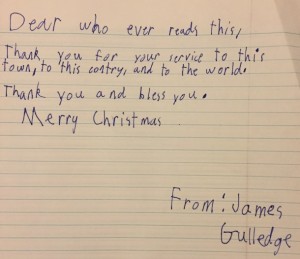 Dear who ever reads this,
Thank you for your service to this
town, to this contry, and to the world.
Thank you and bless you.
Merry Christmas
From: James
Gulledge